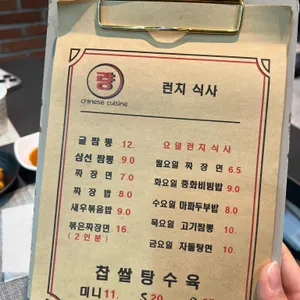 량
chinese cuisine
런치 식사
굴 짬 뽕 12.
삼선 짬뽕 9.0
짜 장 면 7.0
짜 장 밥 8.0
새우볶음밥 9.0
볶은짜장면 16.
(2인분)
요일런치식사
월요일 짜 장 면 6.5
화요일 중화비빔밥 9.0
수요일 마파두부밥 8.0
목요일 고기짬뽕 10.
금요일 자돌탕면 10.
찹쌀탕수육
미니 11. S 20.